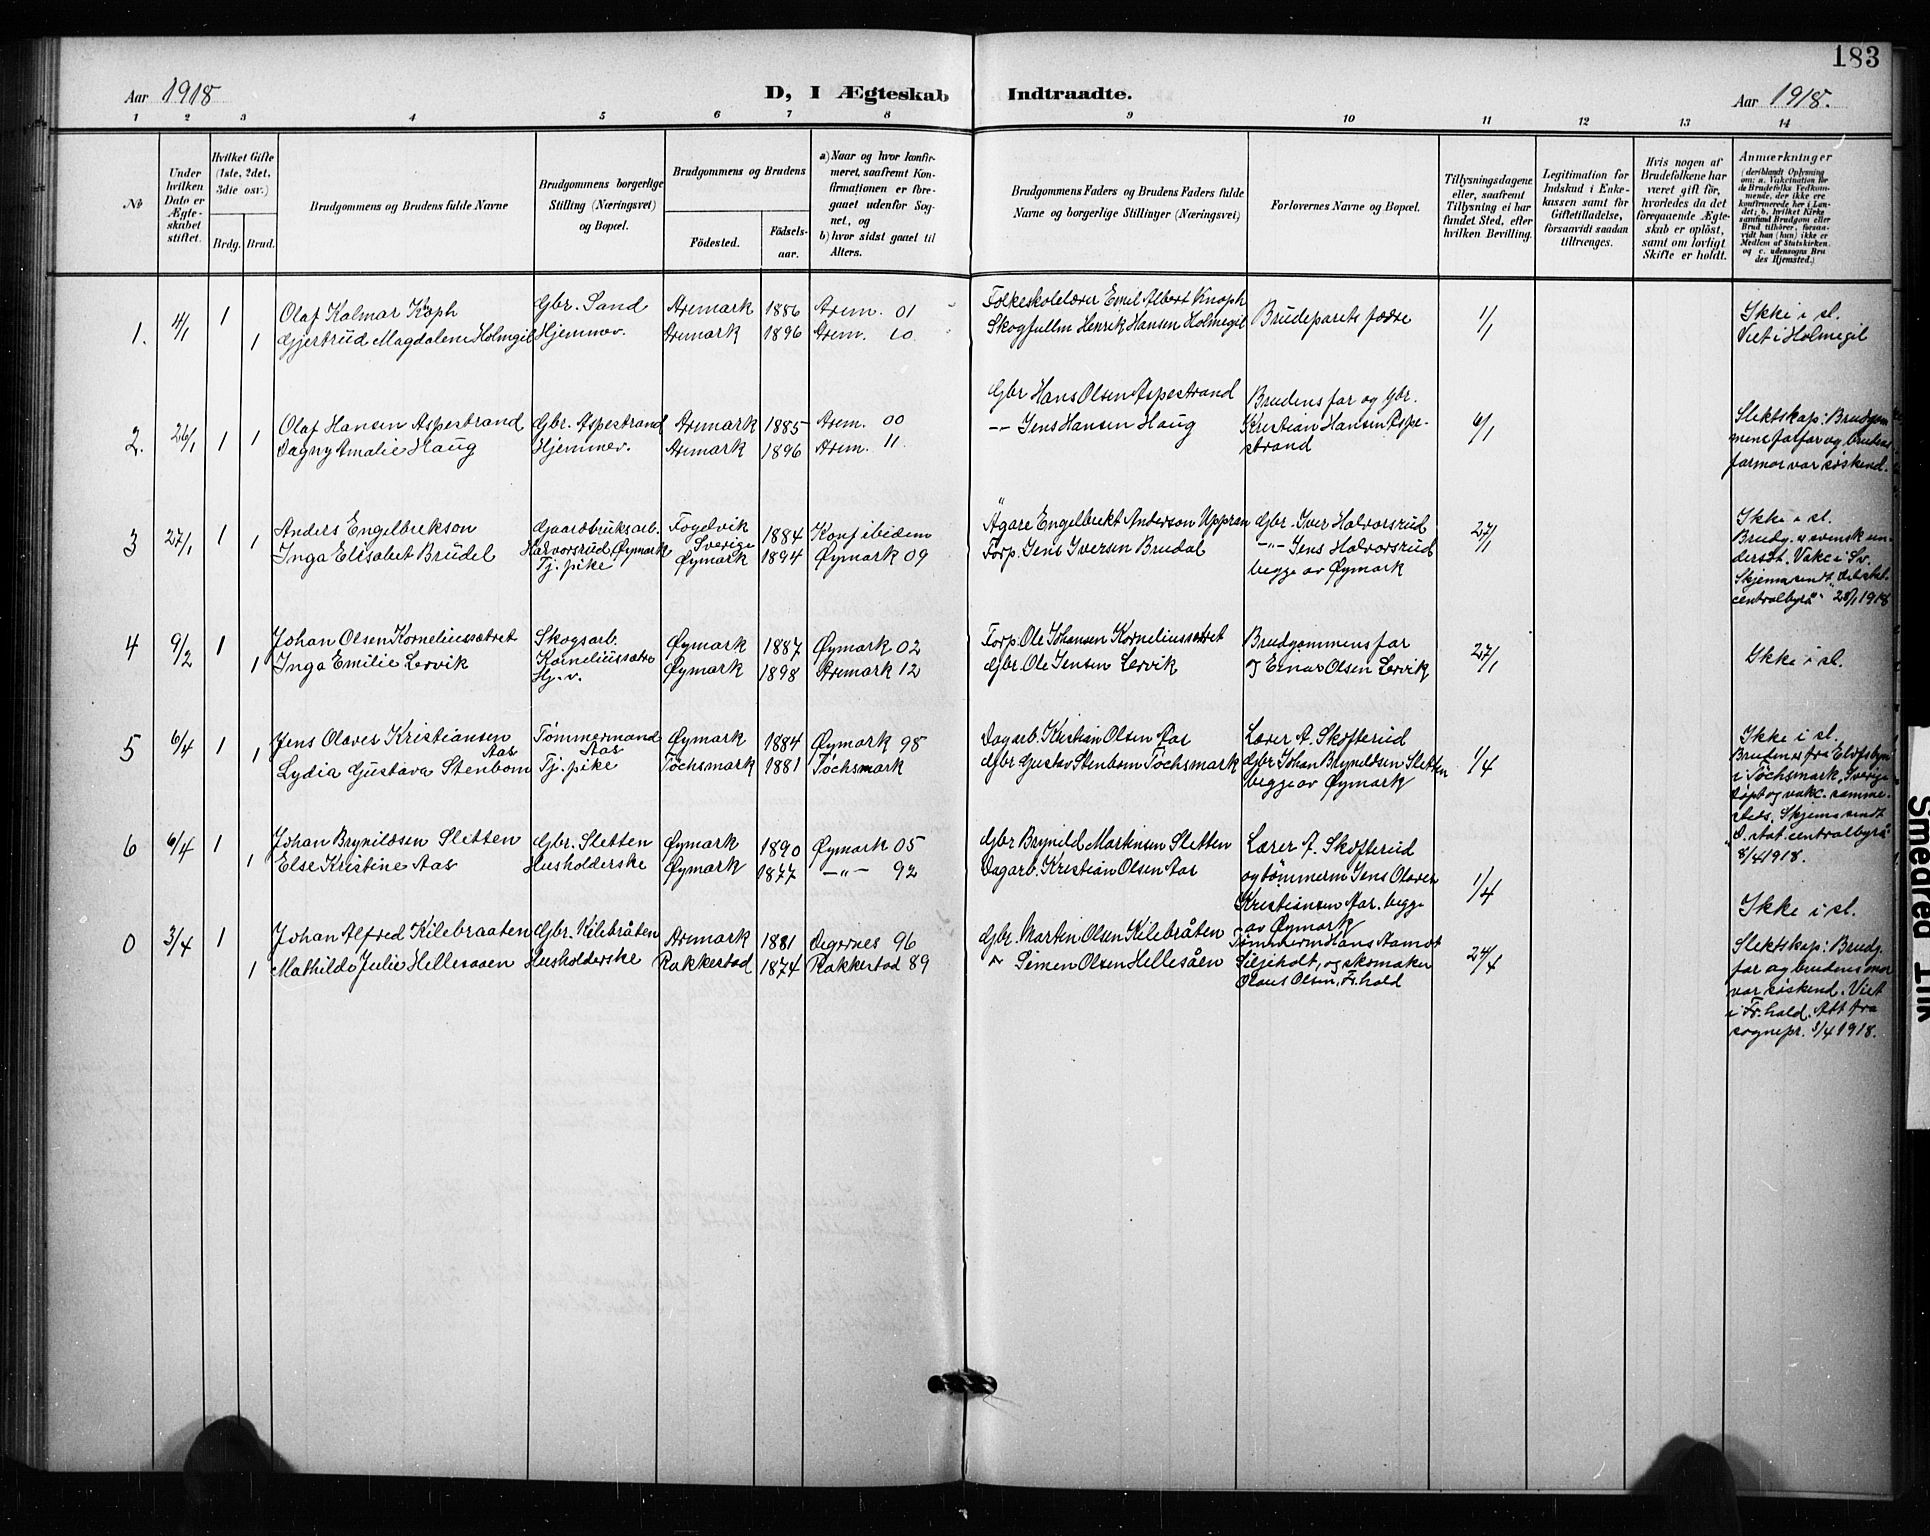 183
Aar 1918
D, I Ægteskab Indtraadte.
Aar 1918.
1 2 3 4 5 6 7 8 9 10 11 12 13 14
No
Under hvilken Dato er Ægteskabet stiftet.
Hvilket Gifte (1ste, 2det, 3die osv.)
Brdg. Brud.
Brudgommens og Brudens fulde Navne
Brudgommens borgerlige Stilling (Næringsvei) og Bopæl.
Brudgommens og Brudens
Fødested.
Fødselsaar.
a) Naar og hvor konfirmeret, saafremt Konfirmationen er foregaaet udenfor Sognet, og
b) hvor sidst gaaet til Alters.
Brudgommens Faders og Brudens Faders fulde Navne og borgerlige Stillinger (Næringsvei)
Forlovernes Navne og Bopæl.
Tillysningsdagene eller, saafremt Tillysning ei har fundet Sted, efter hvilken Bevilling.
Legitimation for Indskud i Enkekassen samt for Giftetilladelse, forsaavidt saadan tiltrænges.
Hvis nogen af Brudefolkene har været gift før, hvorledes da det foregaaende Ægteskab er opløst, samt om lovligt Skifte er holdt.
Anmærkninger
(deriblandt Oplysning om: a. Vakcination for de Brudefolks Vedkommende, der ikke ere konfirmerede her i Landet; b. hvilket Kirkesamfund Brudgom eller Brud tilhører, forsaavidt han (hun) ikke er Medlem af Statskirken, og c. udensogns Brudes Hjemsted.)
1. 11/1 1 Olaf Kalmar Knoph Gbr. Sand Aremark 1886 Arem. 01 Folkeskolelærer Emil Albert Knoph
1 Gjertrud Magdalene Holmgil Hjemmev. Aremark 1896 Arem. 10. Skogfullm Henrik Hansen Holmegil
Brudeparets fædre 1/1
Ikke i sl.
Viet i Holmegil
2. 26/1 1 1 Olaf Hansen Aspestrand Gbr. Aspestrand Aremark 1885 Arem. 00 Gbr Hans Olsen Aspestrand
Dagny Amalie Haug Hjemmev. Aremark 1896 Arem. 11. -"- Jens Hansen Haug
Brudens far og gbr.
Kristian Hansen Aspestrand
6/1
Slektskap: Brudgommens farfar og brudens
farmor var søskend.
3 27/1 1 Anders Engelbrekson Gaardbruksarb. Fogelvik Sverige 1884 Konf ibidem Ägare Engelbrekt Anderson
1 Inga Elisabet Brudel Halvorsrud, Øymark Tj. pike Øymark 1894 Øymark 09 Forp. Jens Iversen Brudal
Gbr. Iver Halvorsrud
-"- Jens Halvorsrud
begge av Øymark
27/1
Ikke i sl.
Brudg. er svensk undersåt. Vakc i Sv.
Skjema sendt
centralbyrå" 28/1 1918
4 9/2 1 Johan Olsen Korneliussætret Skogsarb. Korneliussætre Øymark 1887 Øymark 02 Forp. Ole Johansen Korneliussætret
1 Inga Emilie Lervik Hj.v. Øymark 1898 Aremark 12 Gbr Ole Jensen Lervik
Brudgommens far
og Einar Olsen Lervik
27/1
Ikke i sl.
5 6/4 1 Jens Olaves Kristiansen Aas Tømmermand Aas Øymark 1884 Øymark 98 Dagarb. Kristian Olsen Aas
1 Lydia Gustava Stenbom Tj. pike Töchsmark 1881 Töchsmark Gbr Gustav Stenbom Töchsmark
Lærer A. Skofterud
Gbr Johan Brynildsen Sletten
begge av Øymark
1/4
Ikke i sl.
Bruden er fra Elofsbyn
i Töchsmark, Sverige
Døpt og vakc. sammesteds. Skjema sendt
S. stat. centralbyrå
8/4 1918.
6 6/4 1 Johan Brynildsen Sletten Gbr. Sletten Øymark 1890 Øymark 05 Gbr Brynild Martinsen Sletten
1 Else Kristine Aas Husholderske Øymark 1877 -"- 92 Dagarb. Kristian Olsen Aas
Lærer A. Skofterud
og tømmerm Jens Olaves
Kristiansen Aas. begge
av Øymark
1/4
Ikke i sl.
0 3/4 1 Johan Alfred Kilebraaten Gbr. Kilebråten Aremark 1881 Degernes 96 Gbr. Martin Olsen Kilebråten
1 Mathilde Julie Hellesaaen Husholderske Rakkestad 1874 Rakkestad 89 " Simen Olsen Hellesåen
Tømmerm Hans Aamot
Siljeholt, og skomaker
Olaus Olsen, Fr.hald
24/4
Slektskap: Brudg.
far og brudens mor
var søskend. Viet
i Fr.hald. Att fra
sognepr. 3/4 1918.